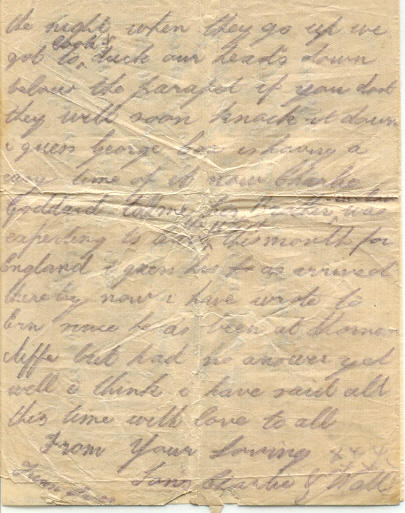 the night, when they go up we
got to, duck our heads down
below the parapet if you dont
they will soon knock it down
i guess George is having a
time of it now Charlie
Goddard told me his Brother was
expecting to this month for
England i guess he as arrived
there by now i have wrote to
Ern since he as been at Shorne
cliffe but had no answer yet
well i think i have said all
this time with love to all
From Your Loving xxx
Sons Charlie & Walt